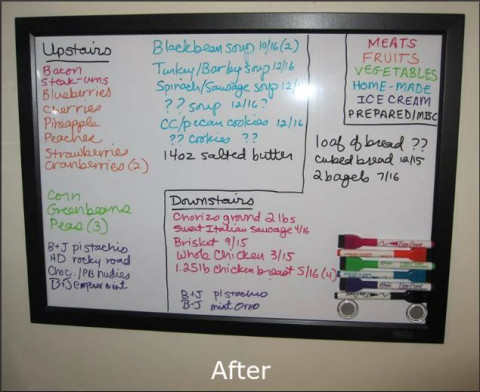 Upstairs
Bacon
Steak-ums
Blueberries
Cherries
Pineapple
Peaches
Strawberries
Cranberries (2)
Corn
Greenbeans
Peas (3)
B+J pistachio
HD rocky road
Choc./PB nudies
B+J
Blackbean soup 10/16 (2)
Turkey/Barley soup 12/16
Spinach/Sausage soup 12/
?? soup 12/16?
CC/pecan cookies 12/16
?? cookies ??
14oz salted butter
MEATS
FRUITS
VEGETABLES
HOME-MADE
ICE CREAM
PREPARED/MISC
loaf of bread ??
cubed bread 12/15
2 bagels 7/16
Downstairs
Chorizo ground 2 lbs
Sweet Italian sausage 4/16
Brisket 9/15
Whole Chicken 3/15
1.25lb chicken breast 5/16 (4)
B+J pistachio
B+J mint oreo
After